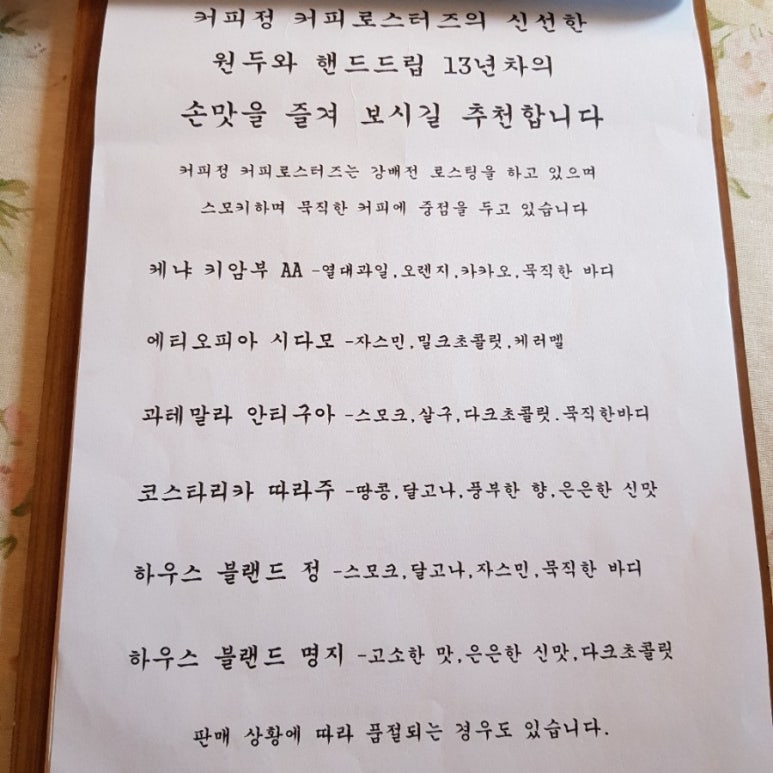 커피정 커피로스터즈의 신선한
원두와 핸드드립 13년차의
손맛을 즐겨 보시길 추천합니다
커피정 커피로스터즈는 강배전 로스팅을 하고 있으며
스모키하며 묵직한 커피에 중점을 두고 있습니다
케냐 키암부 AA -열대과일,오렌지,카카오,묵직한 바디
에티오피아 시다모 -자스민,밀크초콜릿,케러멜
과테말라 안티구아 -스모크,살구,다크초콜릿.묵직한바디
코스타리카 따라주 -땅콩,달고나,풍부한 향,은은한 신맛
하우스 블랜드 정 -스모크,달고나,자스민,묵직한 바디
하우스 블랜드 명지 -고소한 맛,은은한 신맛,다크초콜릿
판매 상황에 따라 품절되는 경우도 있습니다.